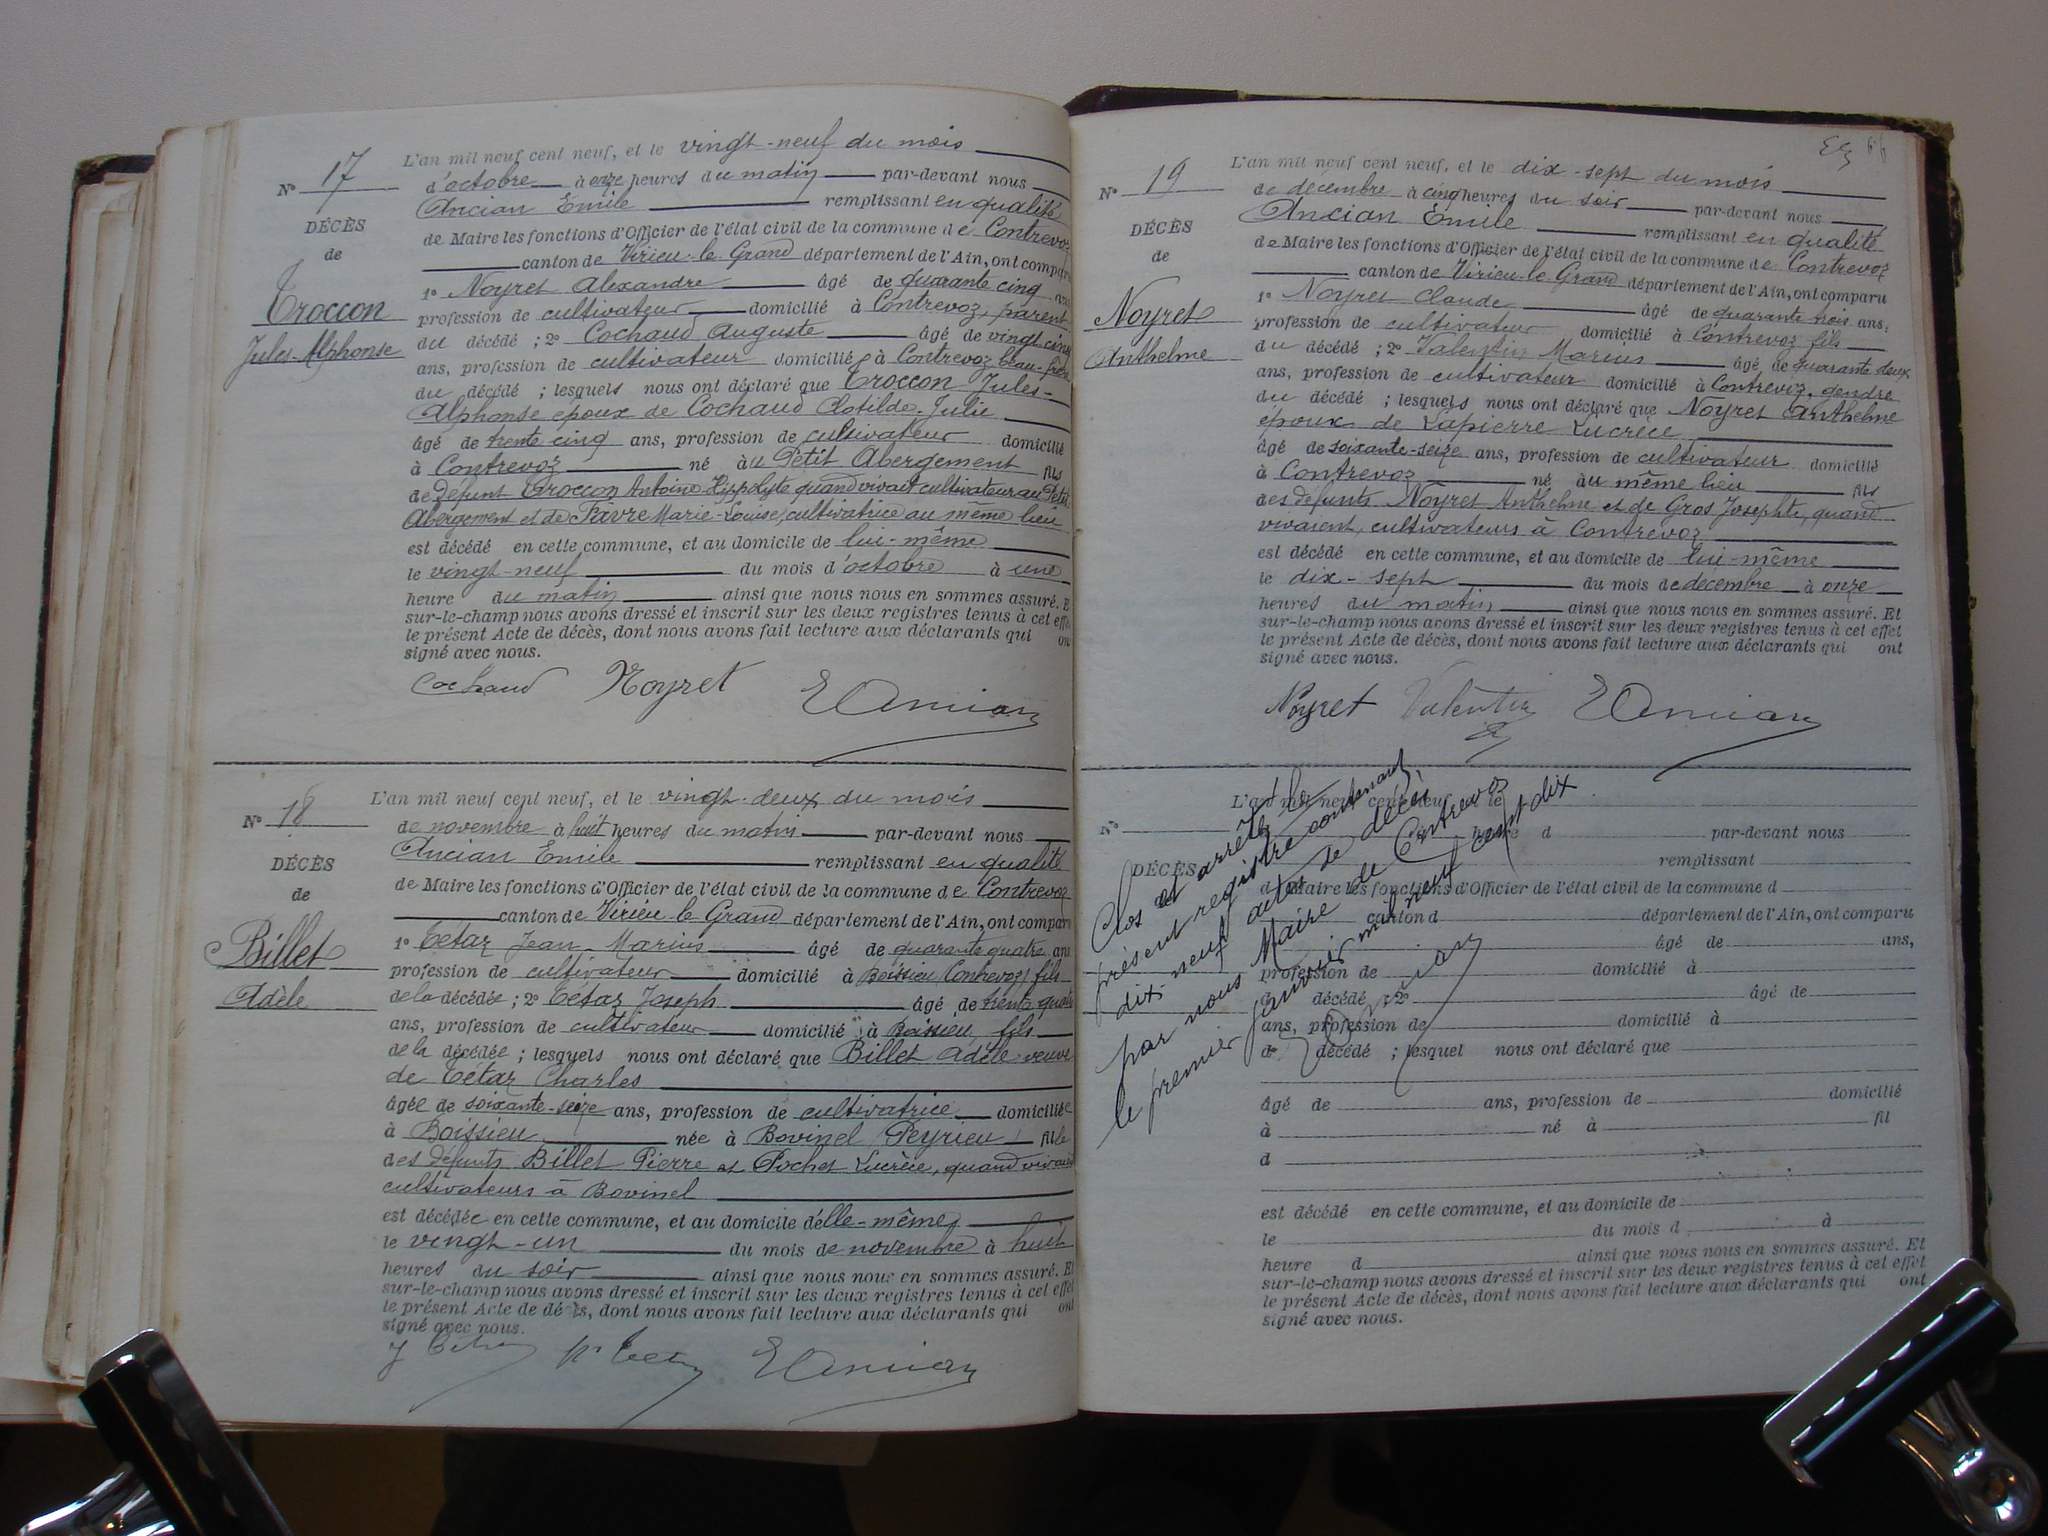 L'an mil neuf cent neuf, et le vingt-neuf du mois
N° 17
d'octobre à onze heures du matin par-devant nous
Ancian Emile remplissant en qualité
DÉCÈS
de Maire les fonctions d'Officier de l'état civil de la commune de Contrevoz
de
canton de Virieu-le-Grand département de l'Ain, ont comparu
Troccon
1° Noyret Alexandre âgé de quarante cinq ans
profession de cultivateur domicilié à Contrevoz, parent
Jules-Alphonse
du décédé ; 2° Cochaud Auguste âgé de vingt cinq
ans, profession de cultivateur domicilié à Contrevoz beau-frère
du décédé ; lesquels nous ont déclaré que Troccon Jules-
Alphonse époux de Cochaud Clotilde-Julie
âgé de trente cinq ans, profession de cultivateur domicilié
à Contrevoz né au Petit Abergement fils
de défunt Troccon Antoine Hippolyte quand vivait cultivateur au Petit
Abergement et de Favre Marie-Louise, cultivatrice au même lieu
est décédé en cette commune, et au domicile de lui-même
le vingt-neuf du mois d'octobre à une
heure du matin ainsi que nous nous en sommes assuré. Et
sur-le-champ nous avons dressé et inscrit sur les deux registres tenus à cet effet
le présent Acte de décès, dont nous avons fait lecture aux déclarants qui ont
signé avec nous.
Cochaud Noyret E Ancian
L'an mil neuf cent neuf, et le vingt-deux du mois
N° 18
de novembre à huit heures du matin par-devant nous
Ancian Emile remplissant en qualité
DÉCÈS
de Maire les fonctions d'Officier de l'état civil de la commune de Contrevoz
de
canton de Virieu-le-Grand département de l'Ain, ont comparu
Billet
1° Tétaz Jean-Marius âgé de quarante quatre ans
profession de cultivateur domicilié à Boissieu (Contrevoz) fils
Adèle
de la décédée ; 2° Tétaz Joseph âgé de trente quatre
ans, profession de cultivateur domicilié à Boissieu, fils
de la décédée ; lesquels nous ont déclaré que Billet Adèle veuve
de Tétaz Charles
âgée de soixante-seize ans, profession de cultivatrice domiciliée
à Boissieu née à Bovinel (Peyrieu) fille
des défunts Billet Pierre et Pochet Lucrèce, quand vivaient
cultivateurs à Bovinel
est décédée en cette commune, et au domicile d'elle-même
le vingt-un du mois de novembre à huit
heures du soir ainsi que nous nous en sommes assuré. Et
sur-le-champ nous avons dressé et inscrit sur les deux registres tenus à cet effet
le présent Acte de décès, dont nous avons fait lecture aux déclarants qui ont
signé avec nous.
E Ancian
L'an mil neuf cent neuf, et le dix-sept du mois
N° 19
de décembre à cinq heures du soir par-devant nous
Ancian Emile remplissant en qualité
DÉCÈS
de Maire les fonctions d'Officier de l'état civil de la commune de Contrevoz
de
canton de Virieu-le-Grand département de l'Ain, ont comparu
Noyret
1° Noyret Claude âgé de quarante trois ans,
profession de cultivateur domicilié à Contrevoz fils
Anthelme
du décédé ; 2° Valentin Marius âgé de quarante deux
ans, profession de cultivateur domicilié à Contrevoz, gendre
du décédé ; lesquels nous ont déclaré que Noyret Anthelme
époux de Lapierre Lucrèce
âgé de soixante-seize ans, profession de cultivateur domicilié
à Contrevoz né au même lieu fils
des défunts Noyret Anthelme et de Gros Josephte, quand
vivaient, cultivateurs à Contrevoz
est décédé en cette commune, et au domicile de lui-même
le dix-sept du mois de décembre à onze
heures du matin ainsi que nous nous en sommes assuré. Et
sur-le-champ nous avons dressé et inscrit sur les deux registres tenus à cet effet
le présent Acte de décès, dont nous avons fait lecture aux déclarants qui ont
signé avec nous.
Noyret Valentin E Ancian
Clos et arrêté le
présent registre contenant
dix-neuf actes de décès,
par nous Maire de Contrevoz
le premier janvier mil neuf cent dix
E Ancian
L'an mil neuf cent neuf, et le
N°
heure d par-devant nous
remplissant
DÉCÈS
d Maire les fonctions d'Officier de l'état civil de la commune d
canton d département de l'Ain, ont comparu
âgé de ans,
profession de domicilié à
d décédé ; 2° âgé de
ans, profession de domicilié à
d décédé ; lesquel nous ont déclaré que
âgé de ans, profession de domicilié
à né à fil
d
est décédé en cette commune, et au domicile de
le du mois d à
heure d ainsi que nous nous en sommes assuré. Et
sur-le-champ nous avons dressé et inscrit sur les deux registres tenus à cet effet
le présent Acte de décès, dont nous avons fait lecture aux déclarants qui ont
signé avec nous.